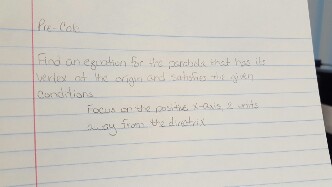 Pre-Calc
Find an equation for the parabola that has its
vertex at the origin and satisfies the given
conditions.
Focus on the positive x-axis, units
away from the directrix